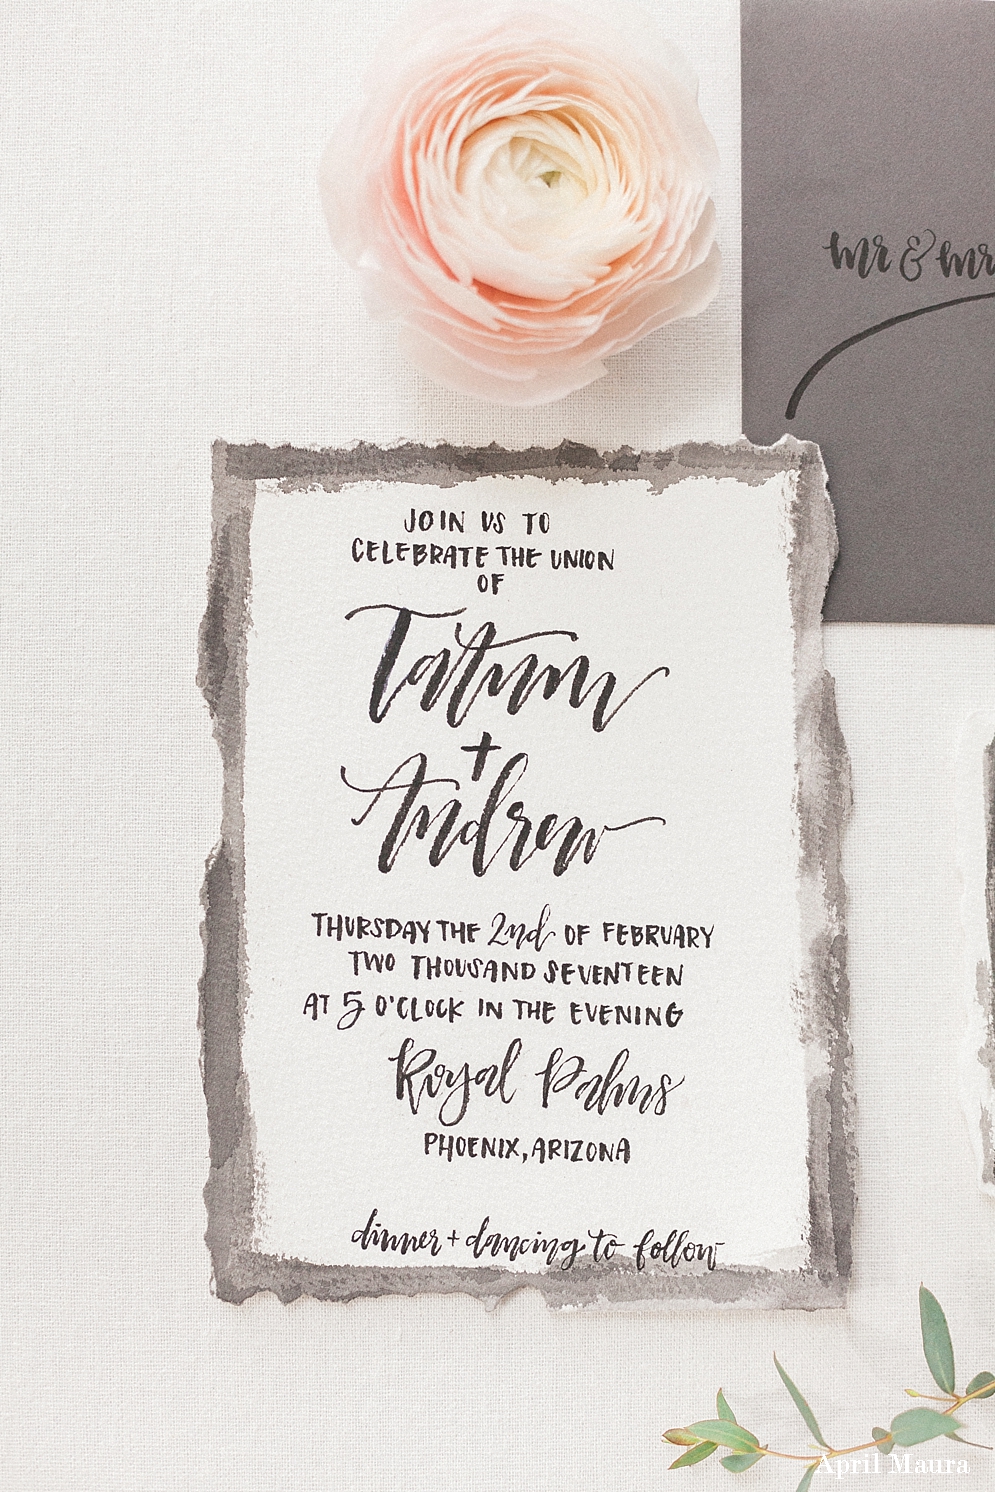 mr & mr
JOIN US TO
CELEBRATE THE UNION
OF
Tatum
+
Andrew
THURSDAY THE 2nd OF FEBRUARY
TWO THOUSAND SEVENTEEN
AT 5 O'CLOCK IN THE EVENING
Royal Palms
PHOENIX, ARIZONA
dinner + dancing to follow
April Maura